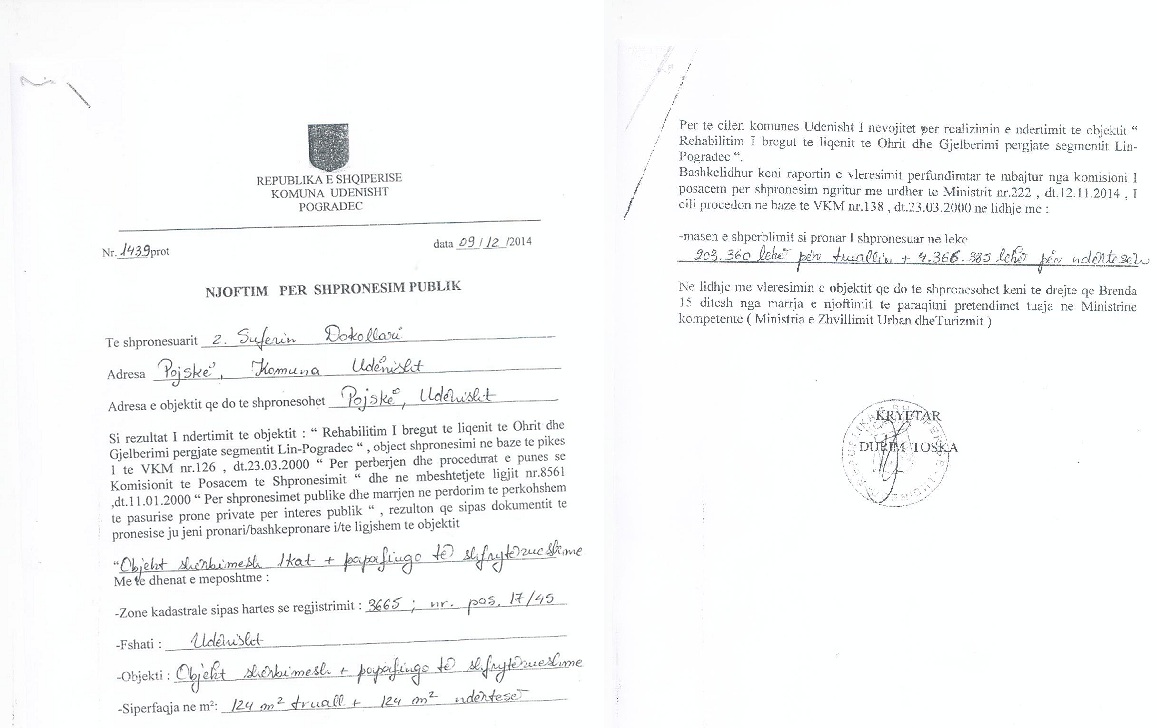 REPUBLIKA E SHQIPERISE
KOMUNA UDENISHT
POGRADEC
Nr. 1439 prot data 09/12/2014
NJOFTIM PER SHPRONESIM PUBLIK
Te shpronesuarit 2. Suferin Dokollari
Adresa Pojskë, Komuna Udënisht
Adresa e objektit qe do te shpronesohet Pojskë, Udënisht
Si rezultat I ndertimit te objektit : “ Rehabilitim I bregut te liqenit te Ohrit dhe
Gjelberimi pergjate segmentit Lin-Pogradec “ , object shpronesimi ne baze te pikes
1 te VKM nr.126 , dt.23.03.2000 “ Per perberjen dhe procedurat e punes se
Komisionit te Posacem te Shpronesimit “ dhe ne mbeshtetjete ligjit nr.8561
,dt.11.01.2000 “ Per shpronesimet publike dhe marrjen ne perdorim te perkohshem
te pasurise prone private per interes publik “ , rezulton qe sipas dokumentit te
pronesise ju jeni pronari/bashkepronare i/te ligjshem te objektit
“Objekt shërbimesh 1kat + papafingo të shfrytëzueshme
Me te dhenat e meposhtme :
-Zone kadastrale sipas hartes se regjistrimit : 3665 ; nr. pas. 17/45
-Fshati : Udënisht
-Objekti : Objekt shërbimesh + papafingo të shfrytëzueshme
-Siperfaqja ne m²: 124 m² truall + 124 m² ndërtesë
Per te cilen komunes Udenisht I nevojitet per realizimin e ndertimit te objektit “
Rehabilitim I bregut te liqenit te Ohrit dhe Gjelberimi pergjate segmentit Lin-
Pogradec “.
Bashkelidhur keni raportin e vleresimit perfundimtar te mbajtur nga komisioni I
posacem per shpronesim ngritur me urdher te Ministrit nr.222 , dt.12.11.2014 , I
cili procedon ne baze te VKM nr.138 , dt.23.03.2000 ne lidhje me :
-masen e shperblimit si pronar I shpronesuar ne leke
903.360 lekë për truallin + 4.366.385 lekë për ndërtesën
Ne lidhje me vleresimin e objektit qe do te shpronesohet keni te drejte qe Brenda
15 ditesh nga marrja e njoftimit te paraqitni pretendimet tuaja ne Ministrine
kompetente ( Ministria e Zhvillimit Urban dheTurizmit )
KRYETAR
DURIM TOSKA